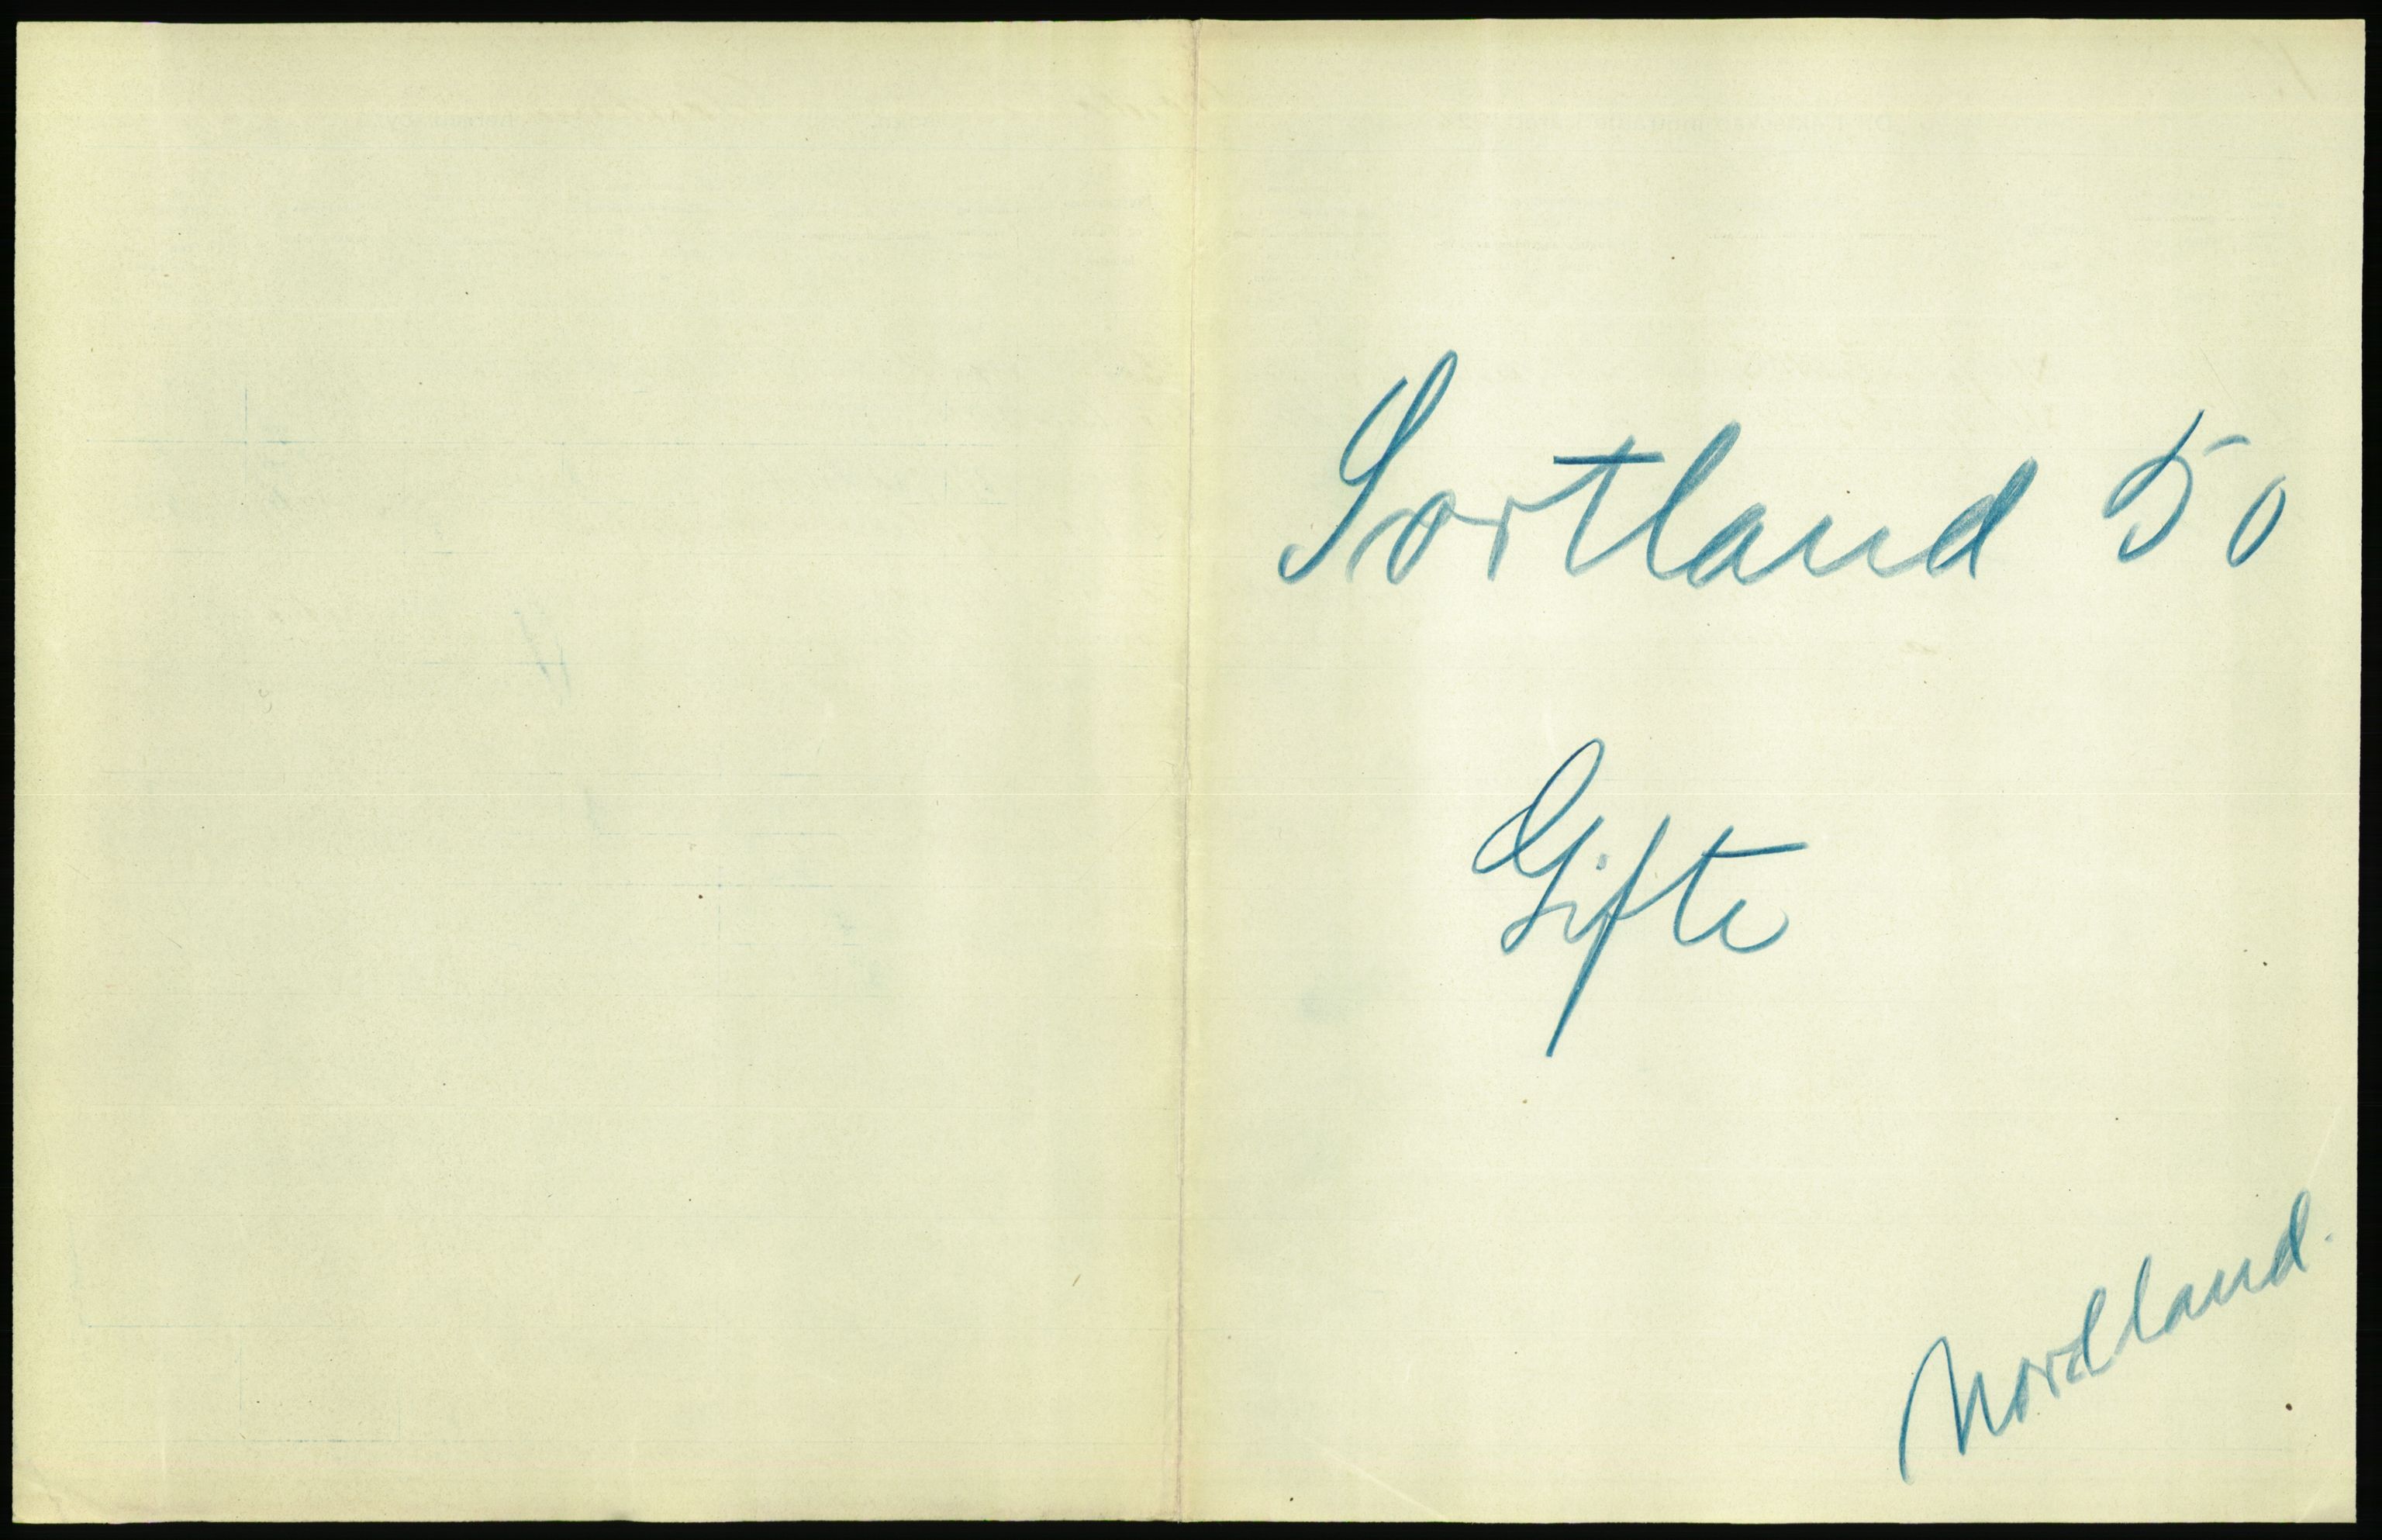 Sortland 50
Gifte
Nordland.